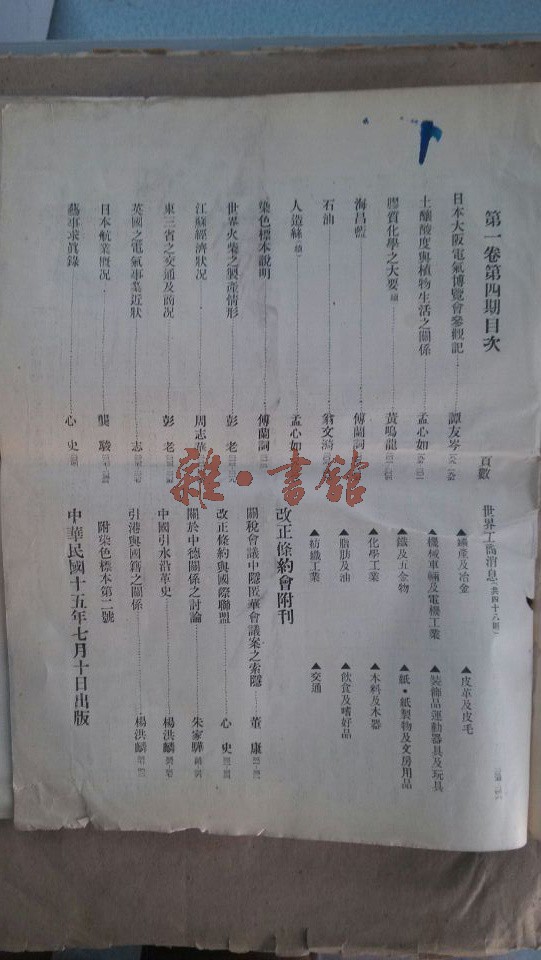 第一卷第四期目次
頁數
日本大阪電氣博覽會參觀記 譚友岑
土釀酸度與植物生活之關係 孟心如
膠質化學之大要 續 黃鳴龍
海昌藍 傅蘭詞
石油 翁文漪
人造絲 續 孟心如
染色標本說明 傅蘭詞
世界火柴之製產情形 彭老
江蘇經濟狀况 周志
東三省之交通及商况 彭老
英國之電氣事業近狀 志
日本航業槪况 龔駿
藝事求眞錄 心史
世界工商消息（共四十八則）
▲鑛產及冶金
▲機械車輛及電機工業
▲鐵及五金物
▲化學工業
▲脂肪及油
▲紡織工業
▲皮革及皮毛
▲裝飾品運動器具及玩具
▲紙·紙製物及文房用品
▲木料及木器
▲飲食及嗜好品
▲交通
改正條約會附刊
關稅會議中隱匿華會議案之索隱 董康
改正條約與國際聯盟 心史
關於中德關係之討論 朱家驊
中國引水沿革史 楊洪麟
引港與國籍之關係 楊洪麟
附染色標本第二號
中華民國十五年七月十日出版
雜·書館